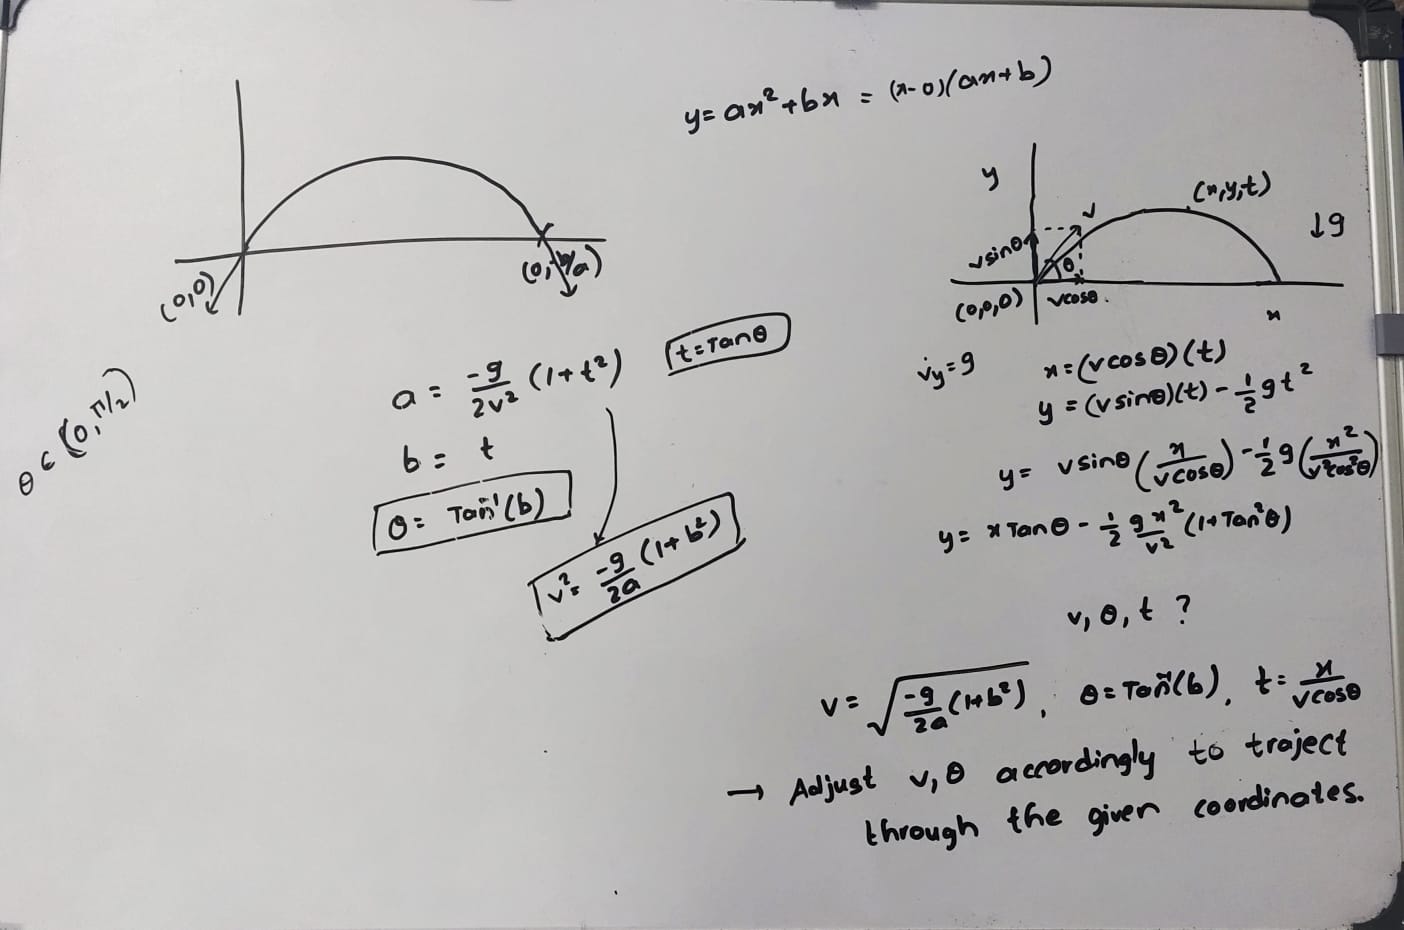 y = ax² + bx = (x-0)(ax+b)
(0,0)
θ ∈ (0, π/2)
a = -g/2v² (1+t²)
t = Tanθ
b = t
θ = Tan⁻¹(b)
v² = -g/2a (1+b²)
y
v
(x,y,t)
↓g
vsinθ
θ
(0,0,0)
vcosθ
x
v̇y = g
x = (vcosθ)(t)
y = (vsinθ)(t) - 1/2 gt²
y = vsinθ (x/vcosθ) - 1/2 g (x²/v²cos²θ)
y = xTanθ - 1/2 gx²/v² (1+Tan²θ)
v, θ, t ?
v = √(-g/2a (1+b²)), θ = Tan⁻¹(b), t = x/vcosθ
→ Adjust v, θ accordingly to traject
through the given coordinates.